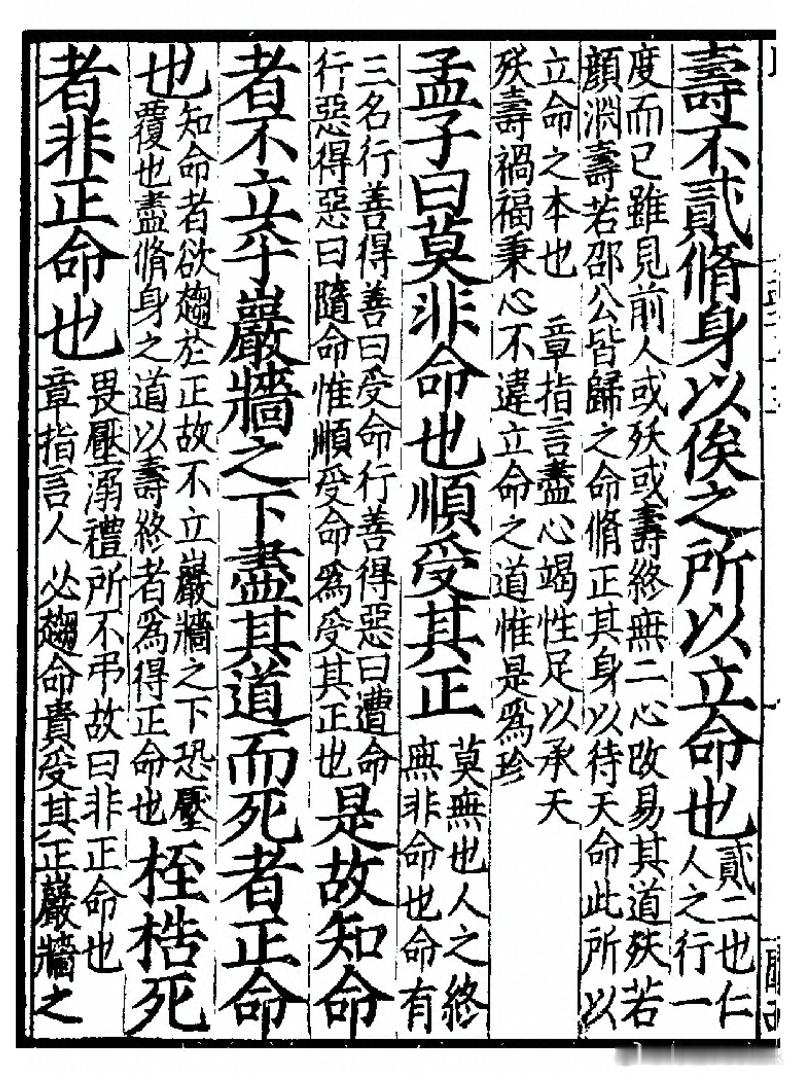 壽不貳脩身以俟之所以立命也
貳二也仁
人之行一
度而已雖見前人或殀或壽終無二心改易其道殀若
顏淵壽若邵公皆歸之命脩正其身以待天命此所以
立命之本也 章指言盡心竭性足以承天
殀壽禍福秉心不違立命之道惟是爲珍
孟子曰莫非命也順受其正
莫無也人之終
無非命也命有
三名行善得善曰受命行善得惡曰遭命
行惡得惡曰隨命惟順受命爲受其正也
是故知命
者不立乎巖牆之下盡其道而死者正命
也
知命者欲趨於正故不立巖牆之下恐壓
覆也盡脩身之道以壽終者爲得正命也
桎梏死
者非正命也
畏壓溺禮所不弔故曰非正命也
章指言人必趨命貴受其正巖牆之